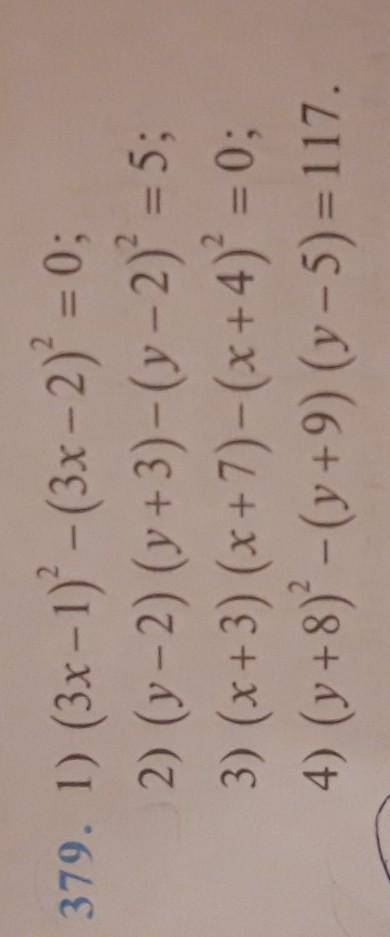 379. 1) (3x−1)² −(3x−2)² = 0;
2) (y−2) (y+3)−(y−2)² = 5;
3) (x+3) (x+7)−(x+4)² = 0;
4) (y+8)² −(y+9) (y−5)=117.